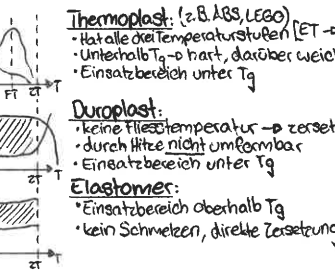 Thermoplast: (z.B. ABS, LEGO)
• Hat alle drei Temperaturstufen [ET →
• Unterhalb Tg → hart, darüber weich
• Einsatzbereich unter Tg
FT ZT T
Duroplast:
• keine Fliesstemperatur → zerset
• durch Hitze nicht umformbar
• Einsatzbereich unter Tg
ZT T
Elastomer:
• Einsatzbereich oberhalb Tg
• kein Schmelzen, direkte Zersetzung
ZT T